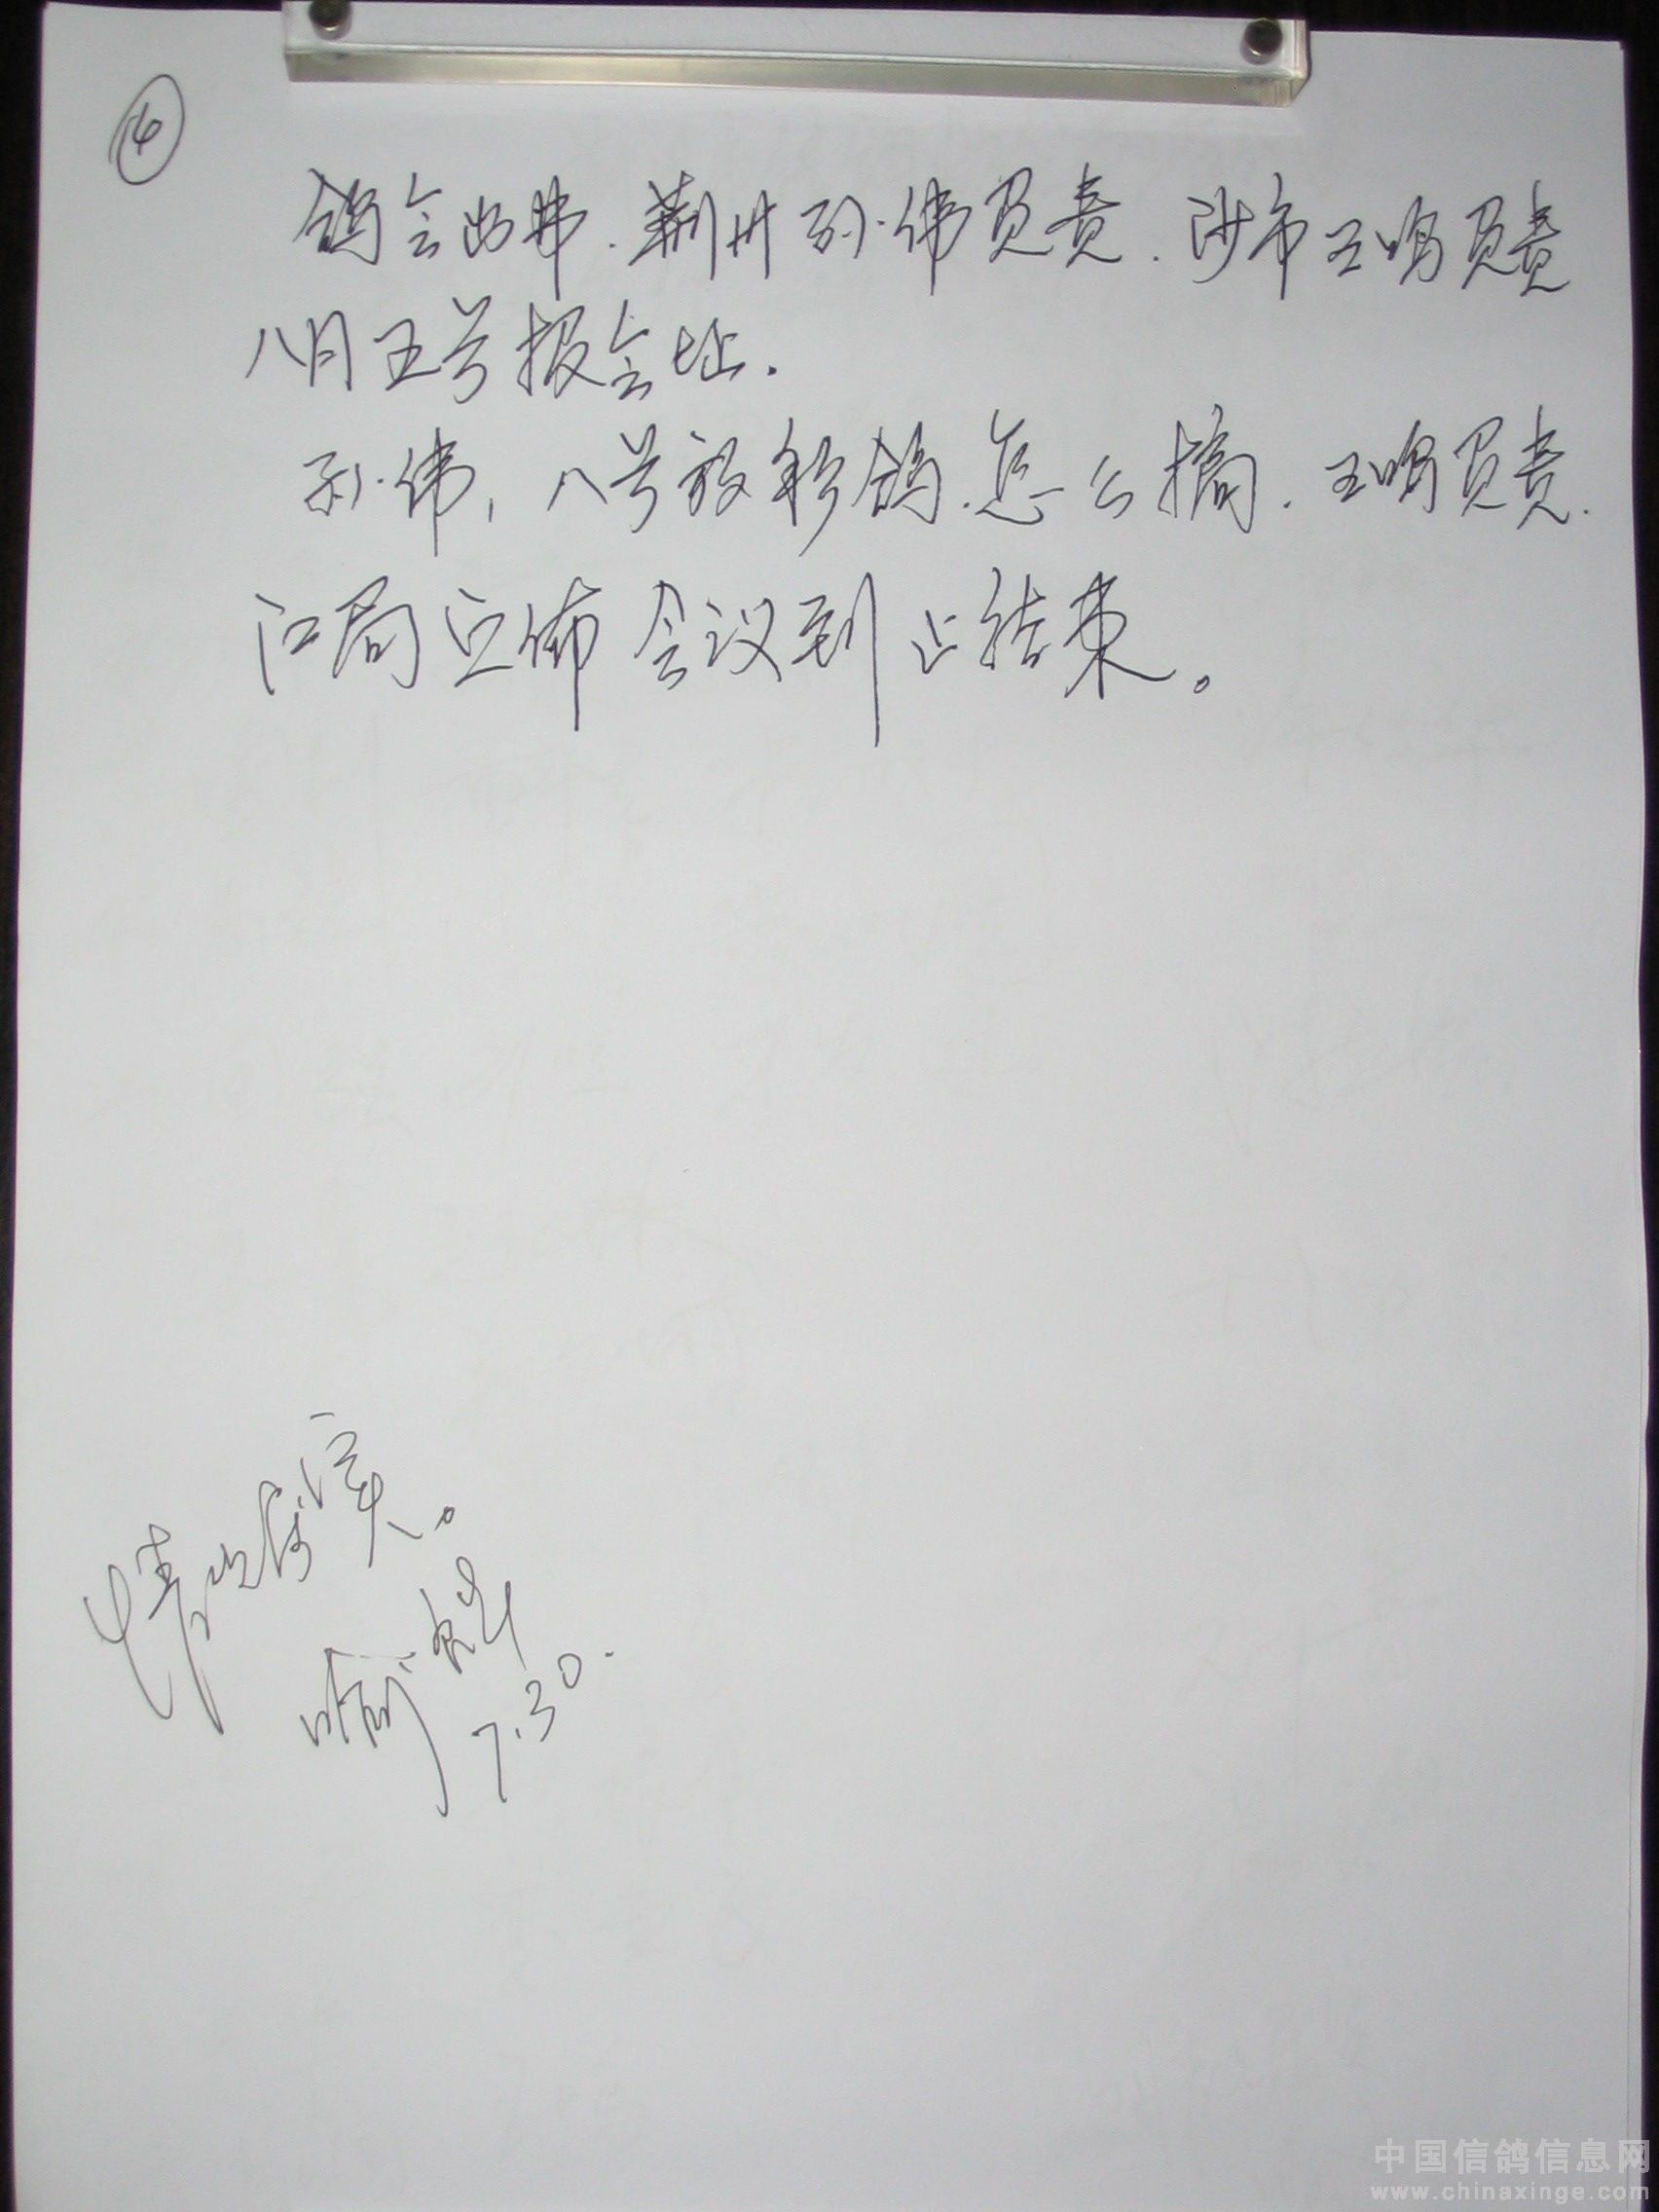 ⑥
鸽会出费.荆州孙伟负责.沙市王鸣负责
八月五号报会址.
孙伟,八号放彩鸽.怎么搞.王鸣负责.
江局宣佈会议到止结束。
情况属实。
7.30.
中国信鸽信息网
www.chinaxinge.com